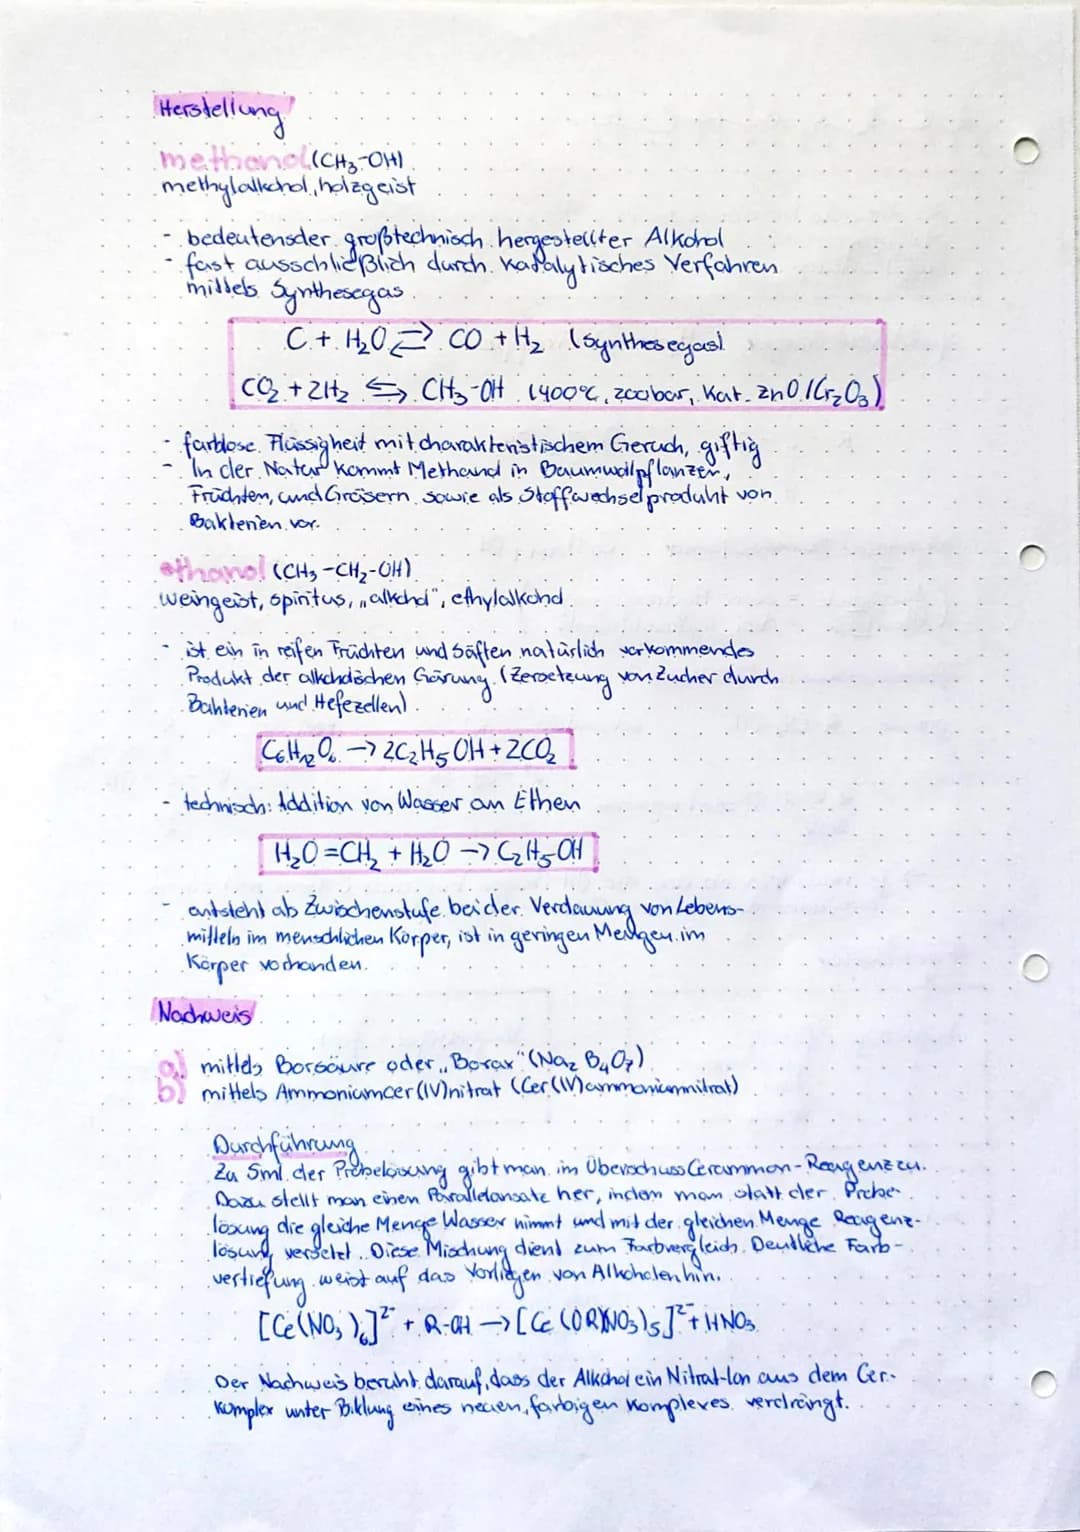 Herstellung
methanol (CH₃-OH)
methylalkohol, holzgeist
- bedeutensder großtechnisch hergestellter Alkohol
- fast ausschließlich durch katalytisches Verfahren
mittels Synthesegas
C + H₂O ⇌ CO + H₂ (Synthesegas)
CO₂ + 2H₂ ⇆ CH₃-OH (400°C, 200bar, Kat. ZnO/Cr₂O₃)
- farblose Flüssigkeit mit charakteristischem Geruch, giftig
- In der Natur kommt Methanol in Baumwollpflanzen,
Früchten, und Gräsern sowie als Stoffwechselprodukt von
Bakterien vor.
ethanol (CH₃-CH₂-OH)
weingeist, spiritus, „alkohol", ethylalkohol
- ist ein in reifen Früchten und Säften natürlich vorkommendes
Produkt der alkoholischen Gärung (Zersetzung von Zucker durch
Bakterien und Hefezellen)
C₆H₁₂O₆ → 2C₂H₅OH + 2CO₂
- technisch: Addition von Wasser an Ethen
H₂O=CH₂ + H₂O → C₂H₅OH
- entsteht als Zwischenstufe bei der Verdauung von Lebens-
mitteln im menschlichen Körper, ist in geringen Mengen im
Körper vorhanden.
Nachweis
a) mittels Borsäure oder „Borax" (Na₂B₄O₇)
b) mittels Ammoniumcer(IV)nitrat (Cer(IV)ammoniumnitrat)
Durchführung
Zu 5ml der Probelösung gibt man im Überschuss Cerammon-Reagenz zu.
Dazu stellt man einen Parallelansatz her, indem man statt der Probe-
lösung die gleiche Menge Wasser nimmt und mit der gleichen Menge Reagenz-
lösung versetzt. Diese Mischung dient zum Farbvergleich. Deutliche Farb-
vertiefung weist auf das Vorliegen von Alkoholen hin.
[Ce(NO₃)₆]²⁻ + R-OH → [Ce(OR)(NO₃)₅]²⁻ + HNO₃
Der Nachweis beruht darauf, dass der Alkohol ein Nitrat-Ion aus dem Cer-
Komplex unter Bildung eines neuen, farbigen Komplexes verdrängt.